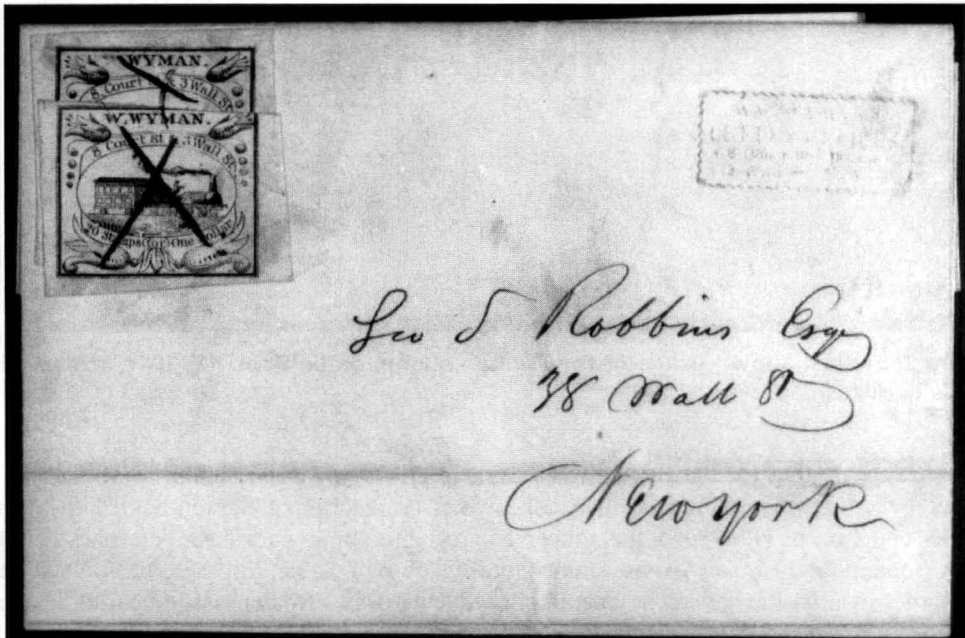 WYMAN.
8, Court St & 3 Wall St.
W. WYMAN.
8 Court St & 3 Wall St.
20 Stamps for One Dollar
Geo S Robbins Esqr
38 Wall St
New York